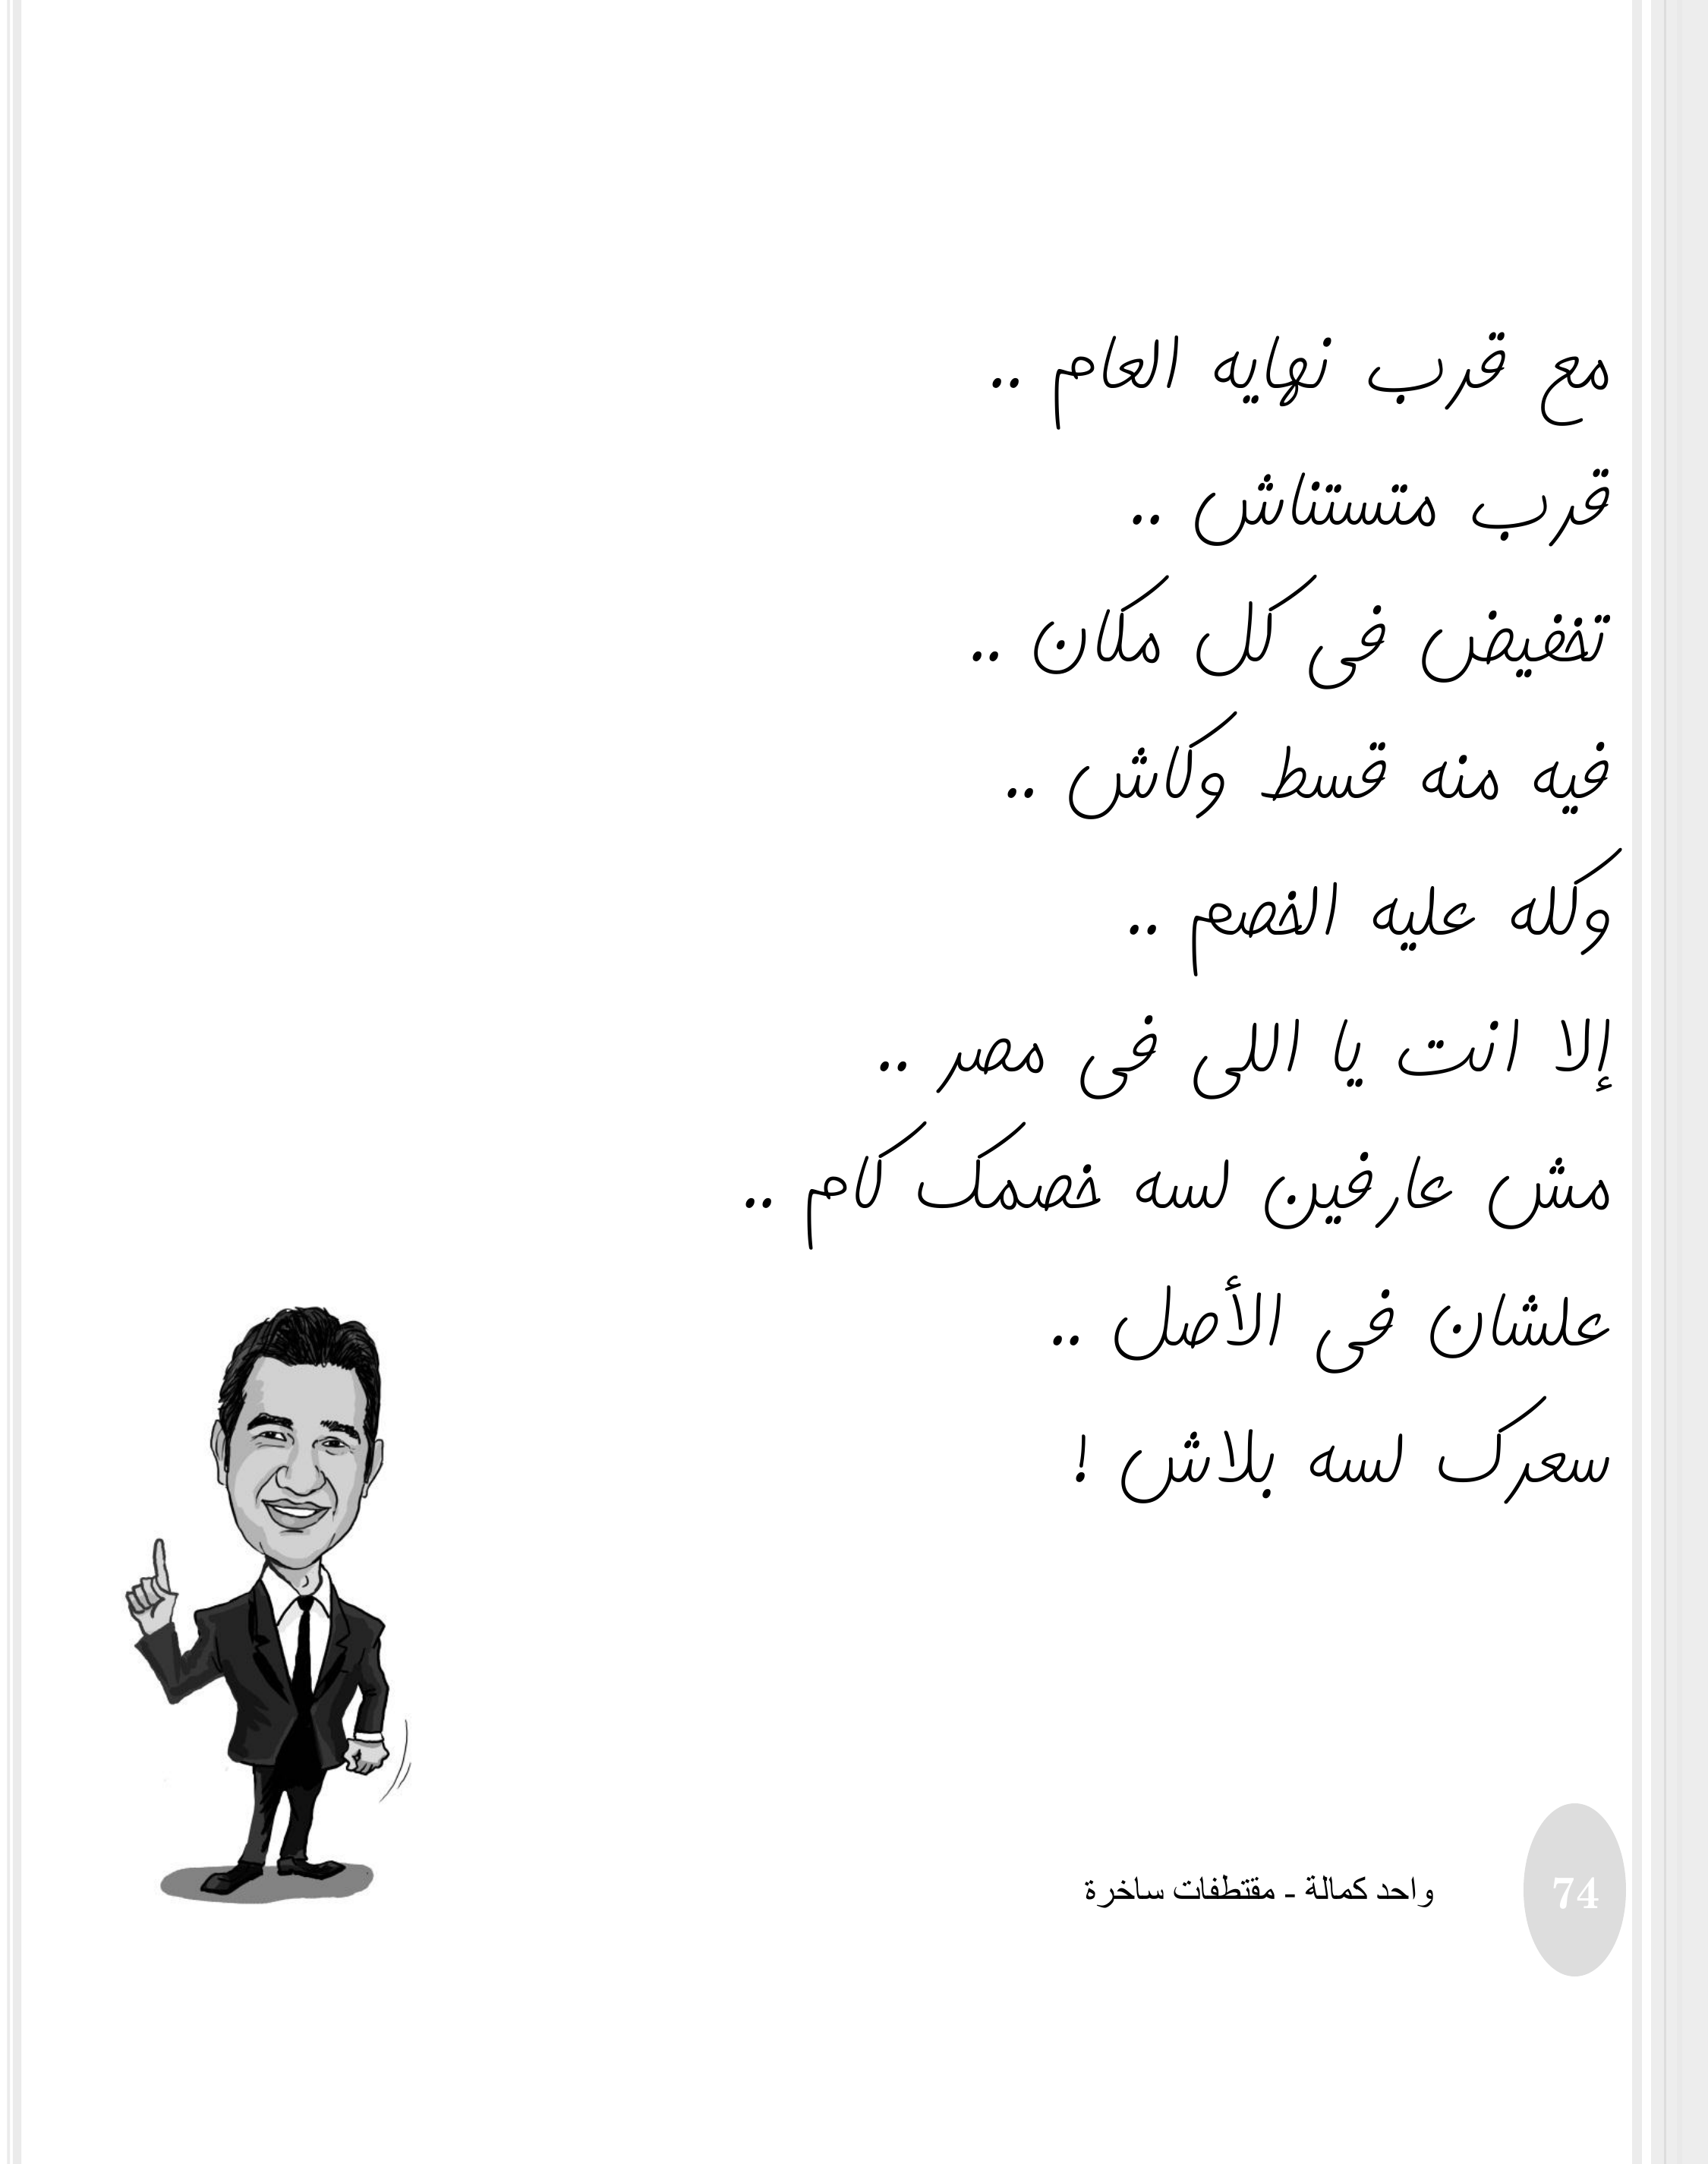 مع قرب نهايه العام ..
قرب متستناش ..
تخفيض فى كل مكان ..
فيه منه قسط وكاش ..
وكله عليه الخصم ..
إلا انت يا اللى فى مصر ..
مش عارفين لسه خصمك كام ..
علشان فى الأصل ..
سعرك لسه بلاش !
واحد كمالة - مقتطفات ساخرة
74